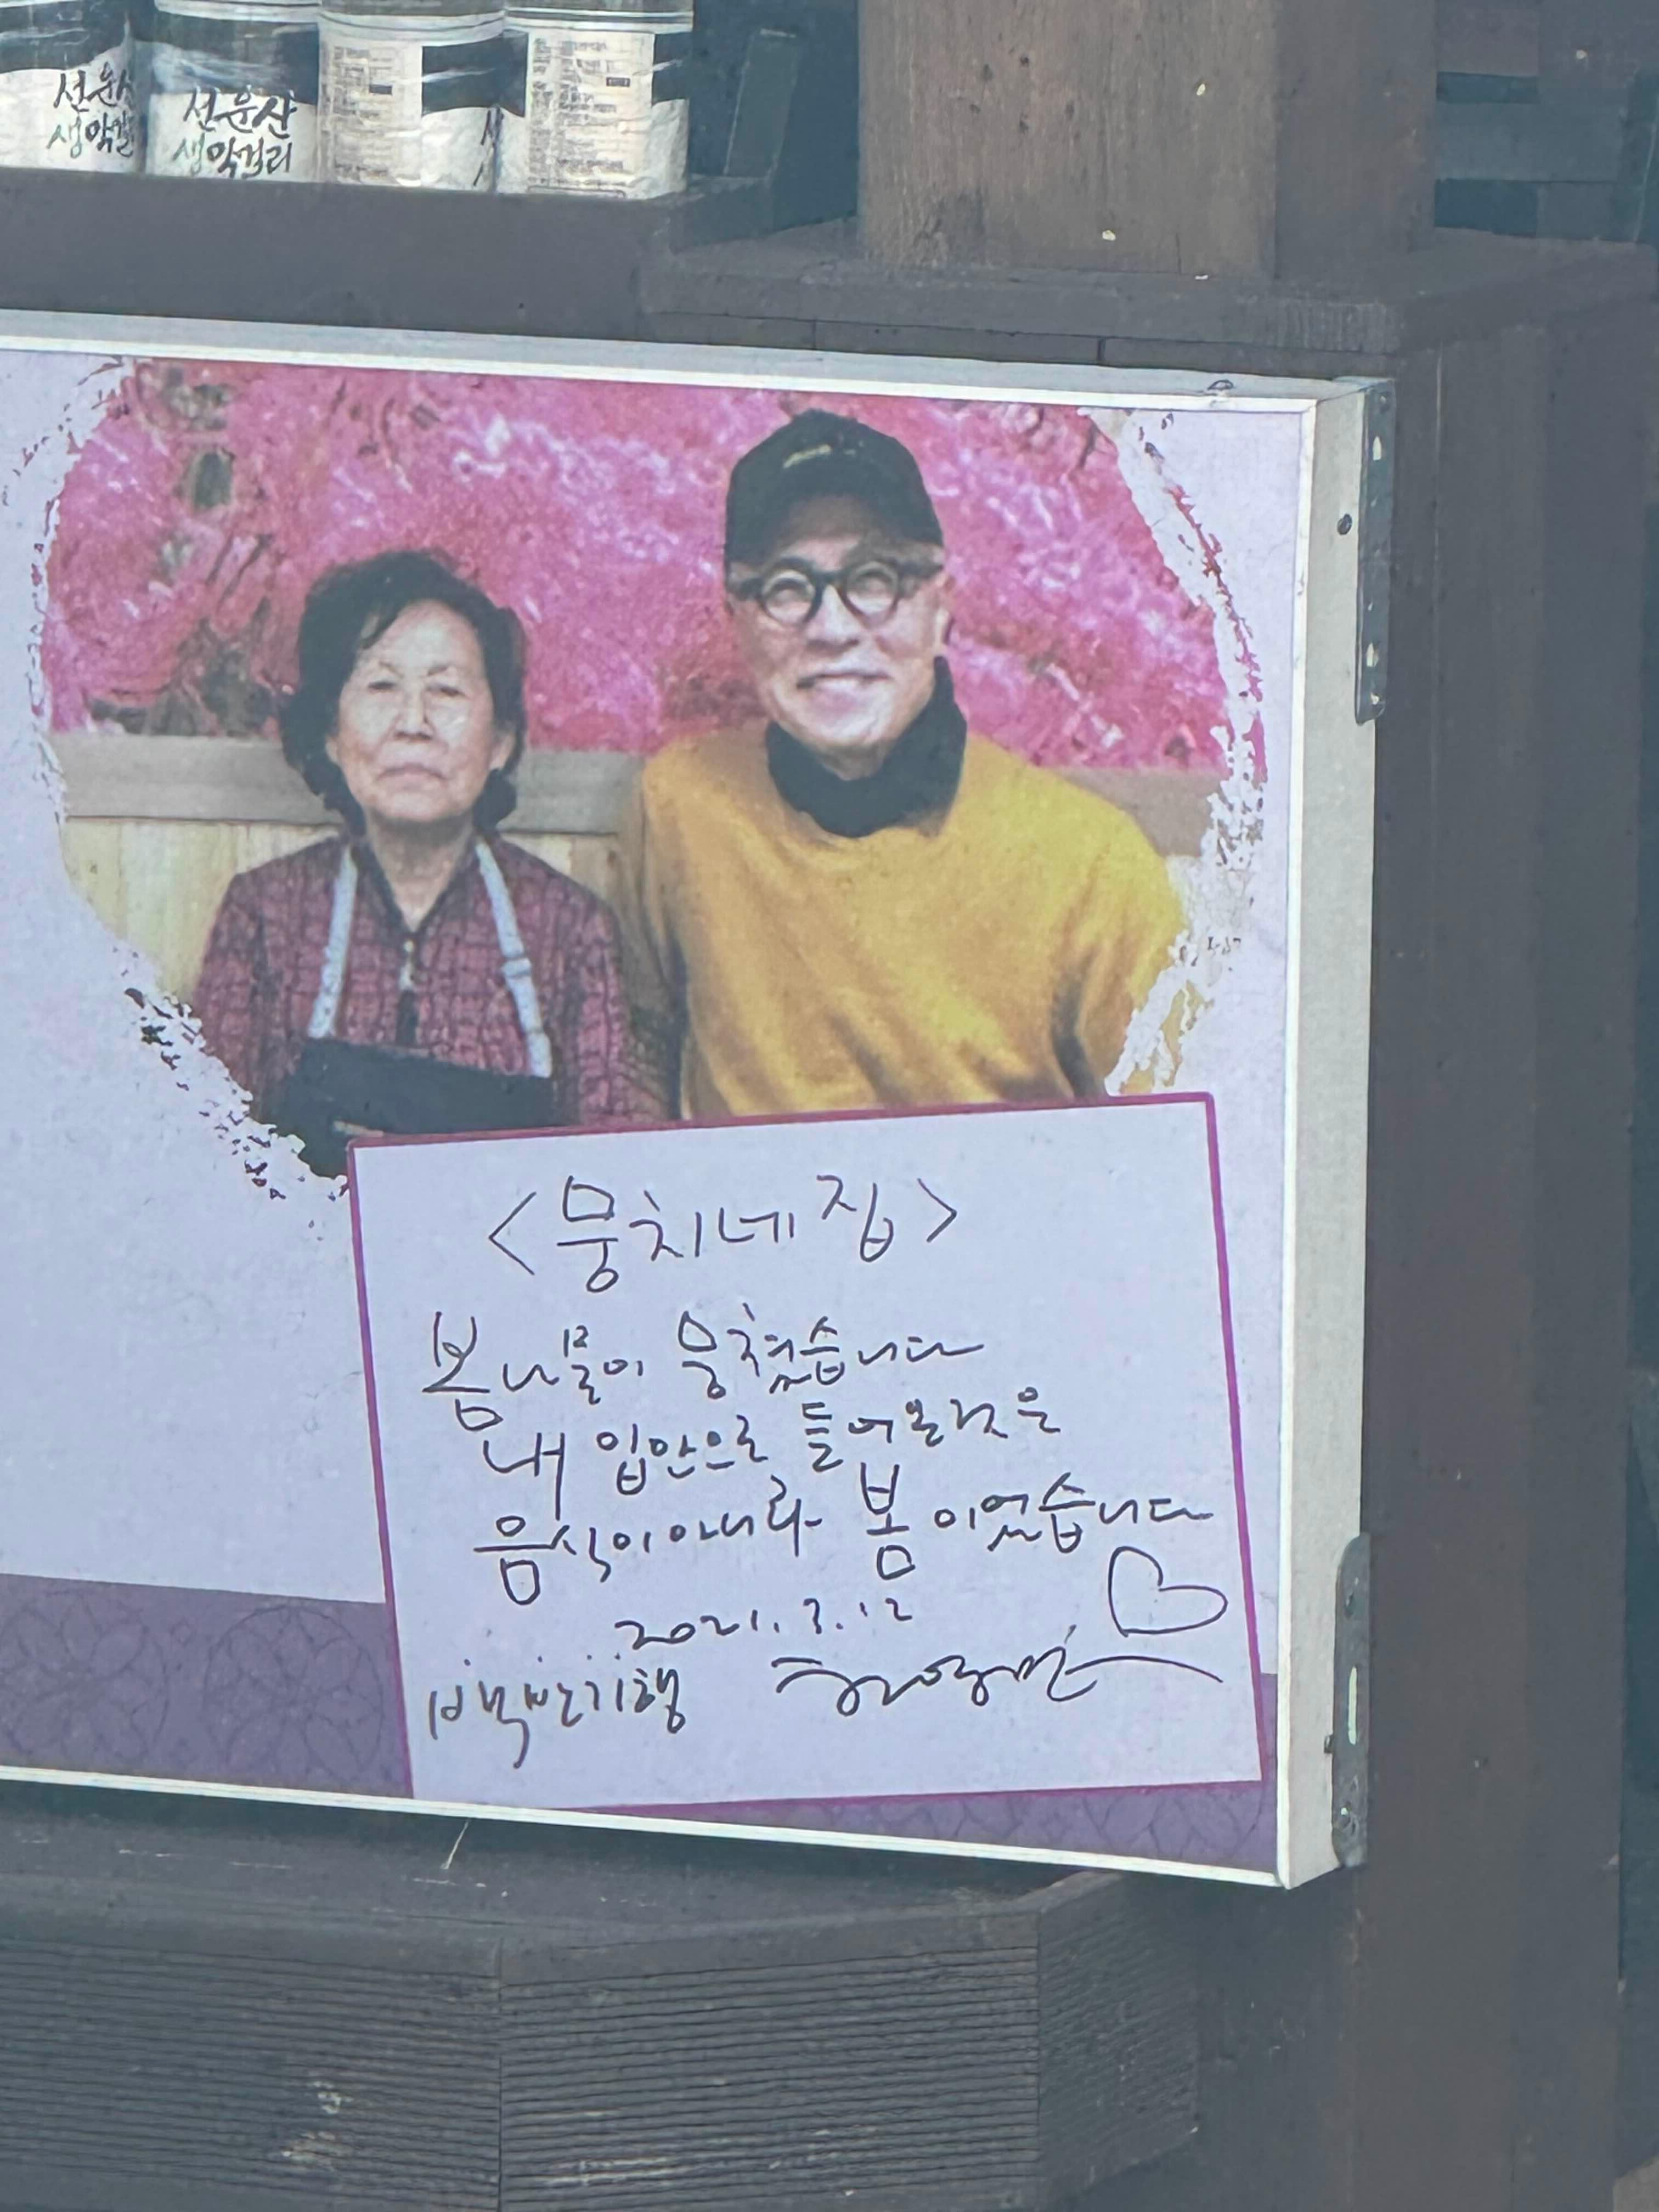 선운산
생막걸리
<뭉치네집>
봄나물이 뭉쳤습니다
내 입안으로 들어온것은
음식이아니라 봄이었습니다
2021.3.12
백반기행 허영만